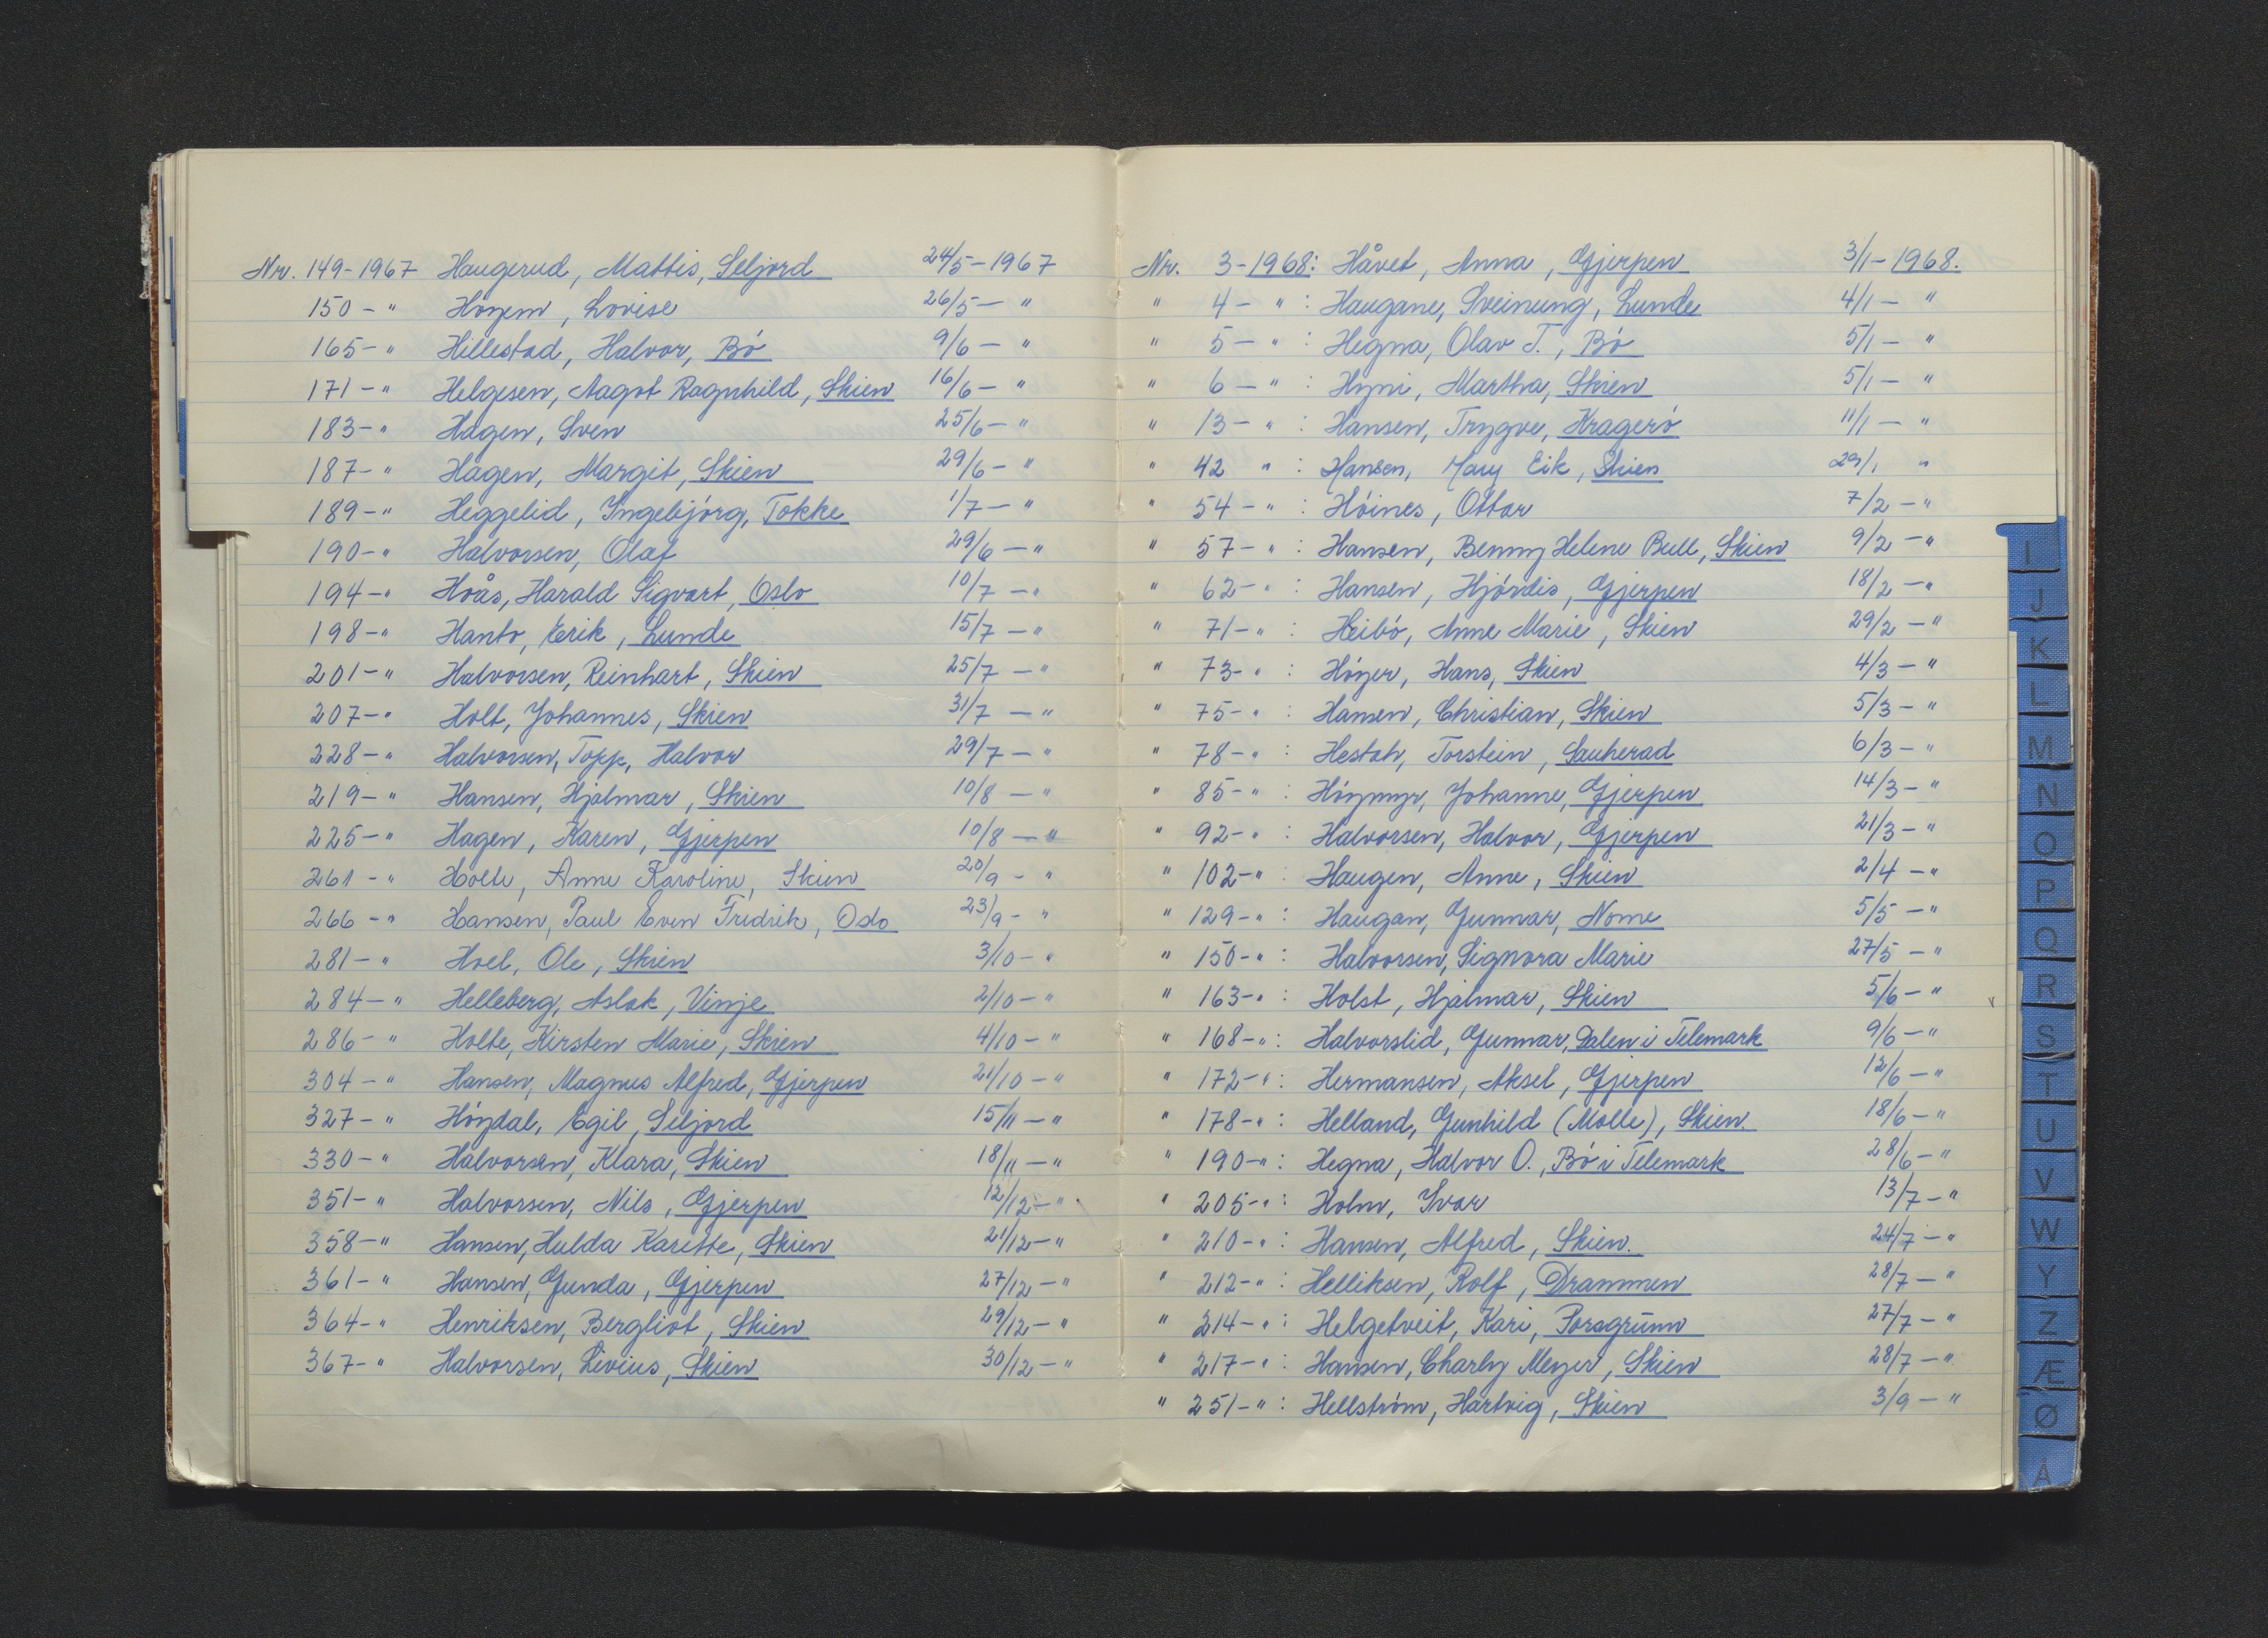 Nr. 149-1967 Haugerud, Mattis, Seljord 24/5-1967
150-" Høyem, Lovise 26/5-"
165-" Hillestad, Halvor, Bó 9/6-"
171-" Helgesen, Aagot Ragnhild, Skien 16/6-"
183-" Hagen, Sven 25/6-"
187-" Hagen, Margit, Skien 29/6-"
189-" Heggelid, Yngebjórg, Tokke 1/7-"
190-" Halvorsen, Olaf 29/6-"
194-" Hoås, Harald Sigvart, Oslo 10/7-"
198-" Hanto, Erik, Lunde 15/7-"
201-" Halvorsen, Reinhart, Skien 25/7-"
207-" Holt, Johannes, Skien 31/7-"
228-" Halvorsen, Topp, Halvor 29/7-"
219-" Hansen, Hjalmar, Skien 10/8-"
225-" Hagen, Karen, Gjerpen 10/8-"
261-" Holte, Anne Karoline, Skien 20/9-"
266-" Hansen, Paul Even Fridrik, Oslo 23/9-"
281-" Hoel, Ole, Skien 3/10-"
284-" Helleberg, Aslak, Vinje 2/10-"
286-" Holte, Kirsten Marie, Skien 4/10-"
304-" Hansen, Magnus Alfred, Gjerpen 21/10-"
327-" Hóydal, Egil, Seljord 15/11-"
330-" Halvorsen, Klara, Skien 18/11-"
351-" Halvorsen, Nils, Gjerpen 12/12-"
358-" Hansen, Hulda Karette, Skien 21/12-"
361-" Hansen, Gunda, Gjerpen 27/12-"
364-" Henriksen, Bergliot, Skien 29/12-"
367-" Halvorsen, Livius, Skien 30/12-"
Nr. 3-1968: Håvet, Anna, Gjerpen 3/1-1968.
" 4-": Haugane, Sveinung, Lunde 4/1-"
" 5-": Hegna, Olav T., Bó 5/1-"
" 6-": Hyni, Martha, Skien 5/1-"
" 13-": Hansen, Trygve, Krageró 11/1-"
" 42 ": Hansen, Mary Eik, Skien 29/1 "
" 54-": Hóines, Ottar 7/2-"
" 57-": Hansen, Benny Helene Bull, Skien 9/2-"
" 62-": Hansen, Hjórdis, Gjerpen 18/2-"
" 71-": Heibó, Anne Marie, Skien 29/2-"
" 73-": Hóyer, Hans, Skien 4/3-"
" 75-": Hansen, Christian, Skien 5/3-"
" 78-": Hestah, Torstein, Sauherad 6/3-"
" 85-": Hóymyr, Johanne, Gjerpen 14/3-"
" 92-": Halvorsen, Halvor, Gjerpen 21/3-"
" 102-": Haugen, Anne, Skien 2/4-"
" 129-": Haugan, Gunnar, Nome 5/5-"
" 150-": Halvorsen, Signora Marie 27/5-"
" 163-": Holst, Hjalmar, Skien 5/6-"
" 168-": Halvorslid, Gunnar, Dalen i Telemark 9/6-"
" 172-": Hermansen, Aksel, Gjerpen 12/6-"
" 178-": Helland, Gunhild (Molle), Skien. 18/6-"
" 190-": Hegna, Halvor O., Bó i Telemark 28/6-"
" 205-": Holm, Yvar 13/7-"
" 210-": Hansen, Alfred, Skien. 24/7-"
" 212-": Helliksen, Rolf, Drammen 28/7-"
" 214-": Helgetveit, Kari, Porsgrunn 27/7-"
" 217-": Hansen, Charly Meyer, Skien 28/7-"
" 251-": Hellstróm, Hartvig, Skien 3/9-"
I
J
K
L
M
N
O
P
Q
R
S
T
U
V
W
Y
Z
Æ
Ø
Å